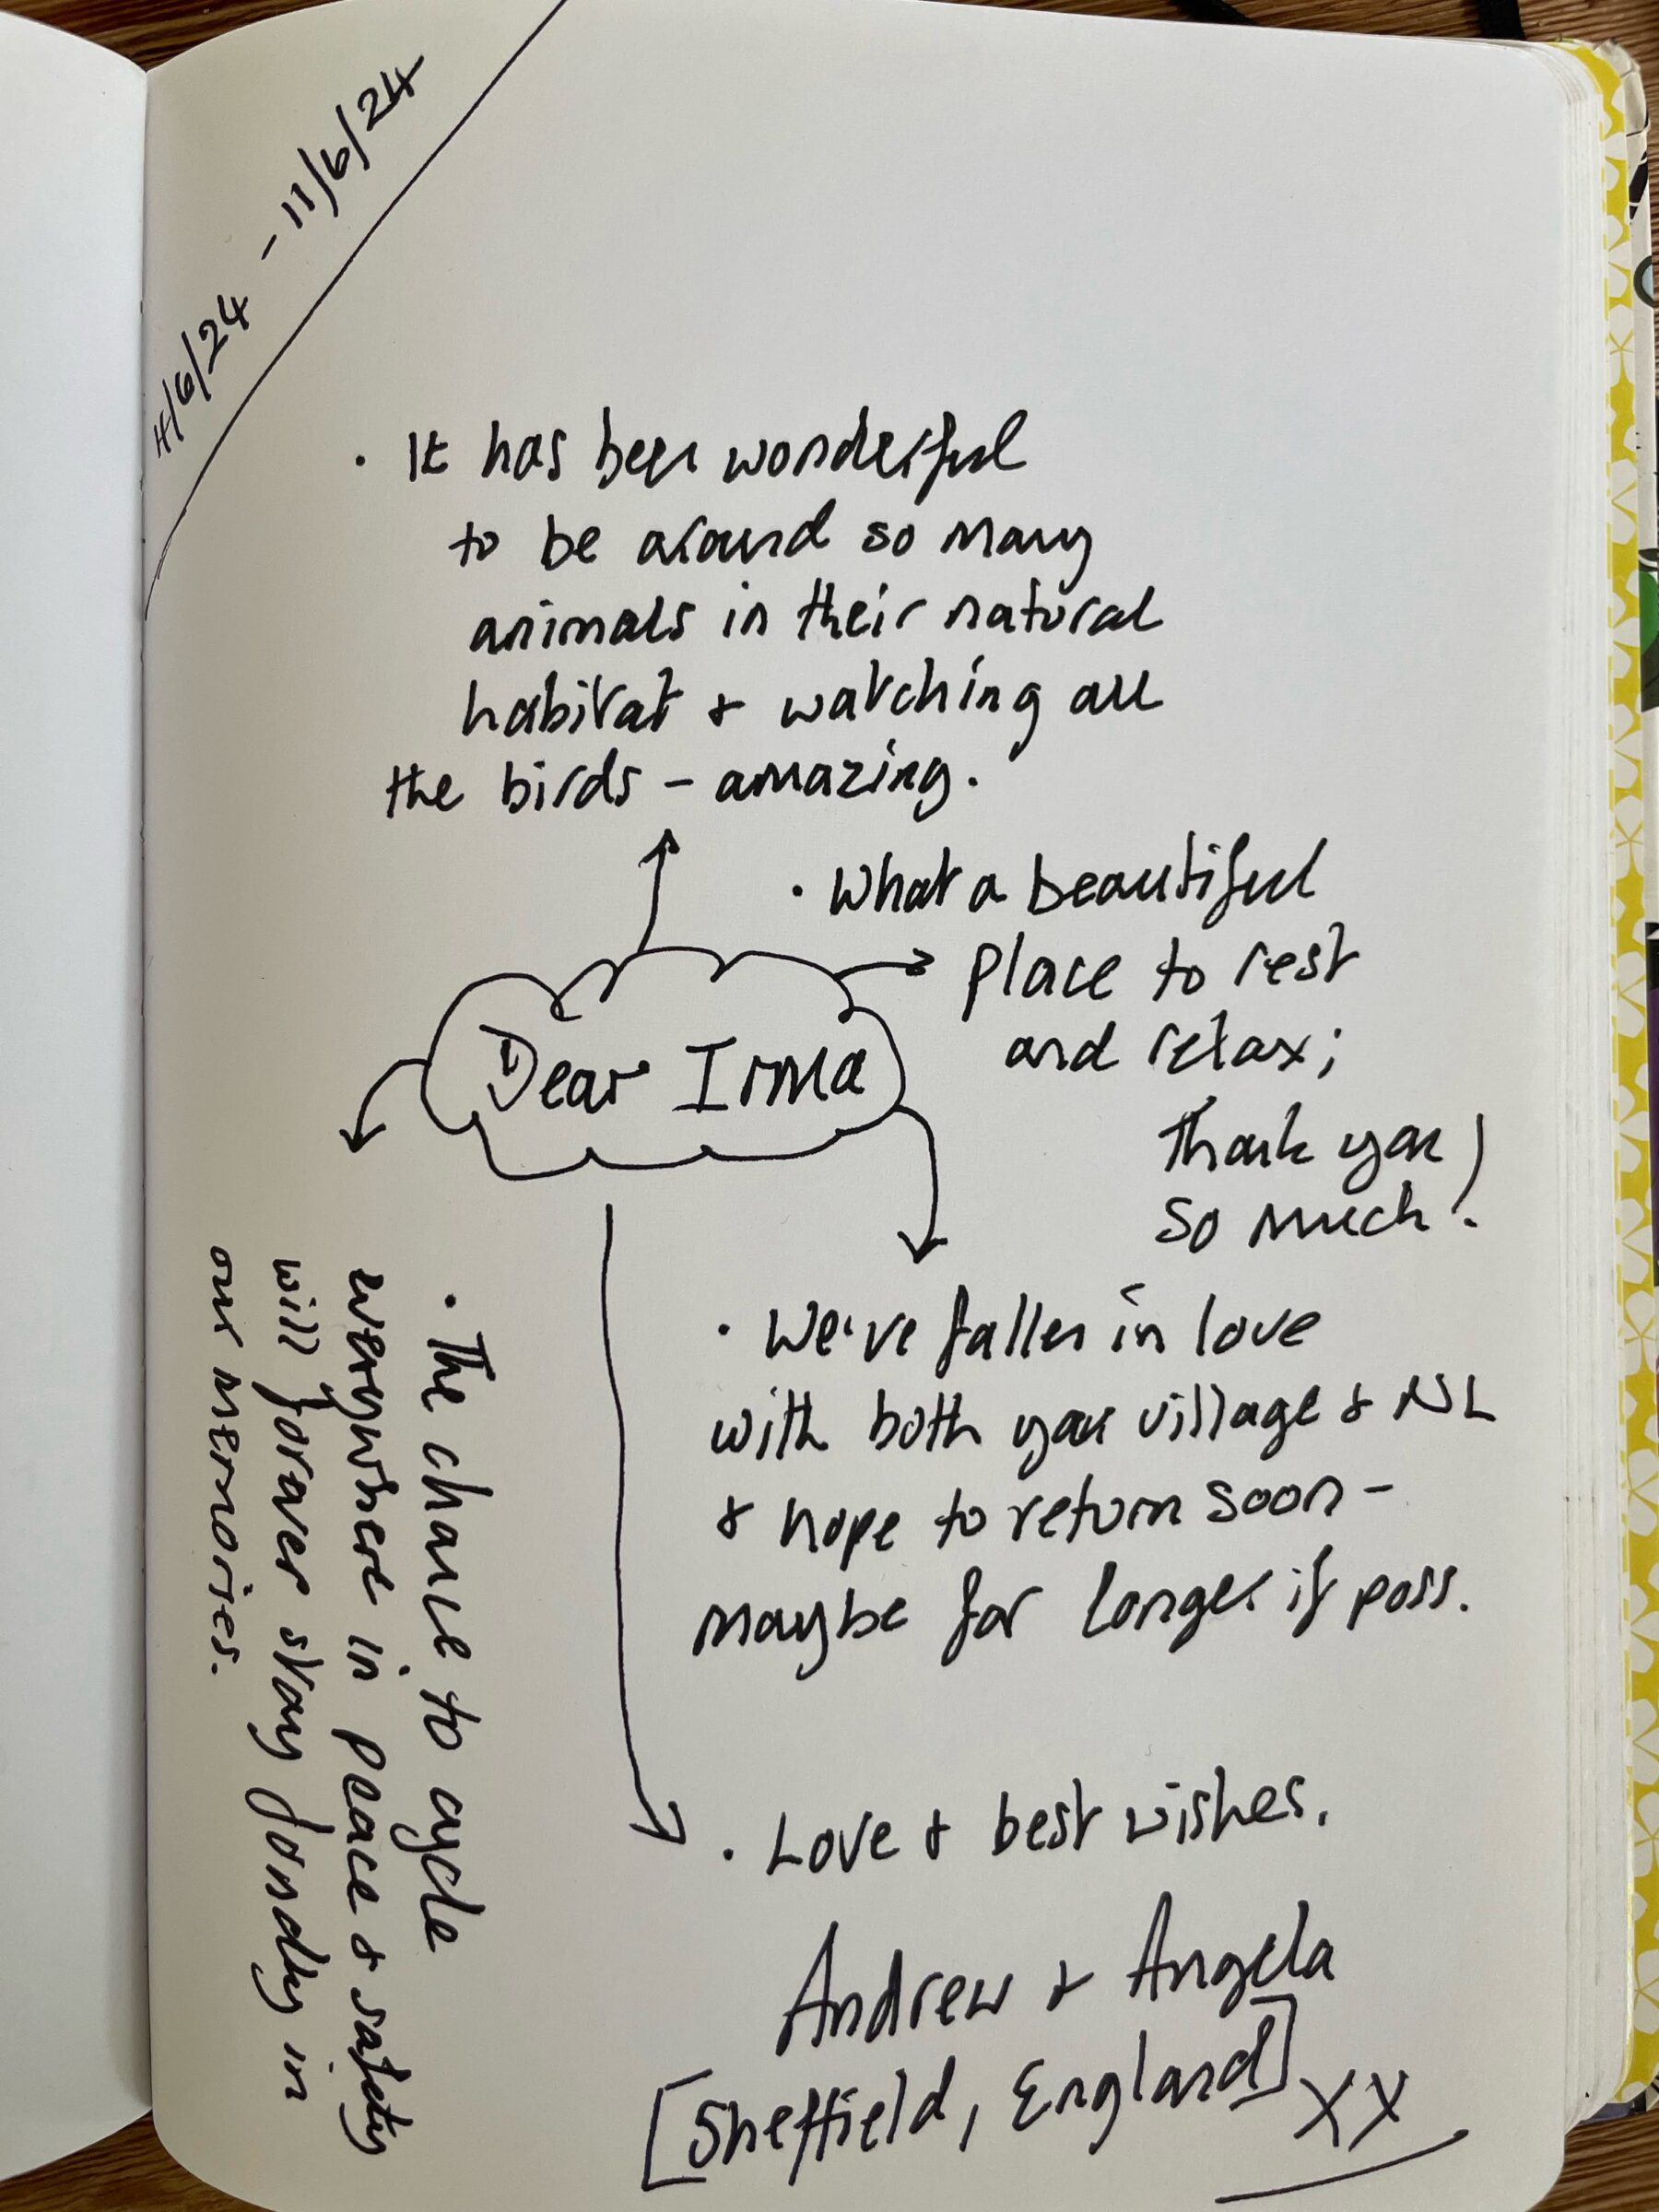 - 11/6/24
· It has been wonderful
to be around so many
animals in their natural
habitat & watching all
the birds - amazing.
· What a beautiful
place to rest
and relax;
Thank you
so much!
Dear Irma
· We've fallen in love
with both your village & NL
& hope to return soon -
maybe for longer if poss.
· The chance to cycle
everywhere in peace & safety
will forever stay fondly in
our memories.
· Love & best wishes,
Andrew & Angela
[Sheffield, England]
XX